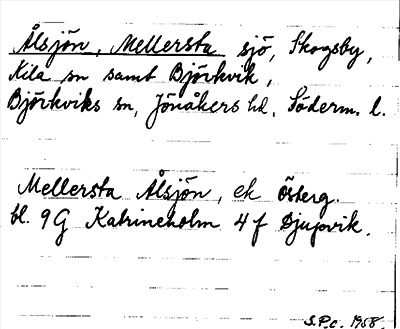 Ålsjön, Mellersta sjö, Skogsby,
Kila sn samt Björkvik,
Björkviks sn, Jönåkers hd, Söderm. l.
Mellersta Ålsjön, ek Österg.
bl. 9G Katrineholm 4f Djupvik.
S.P.c. 1958.